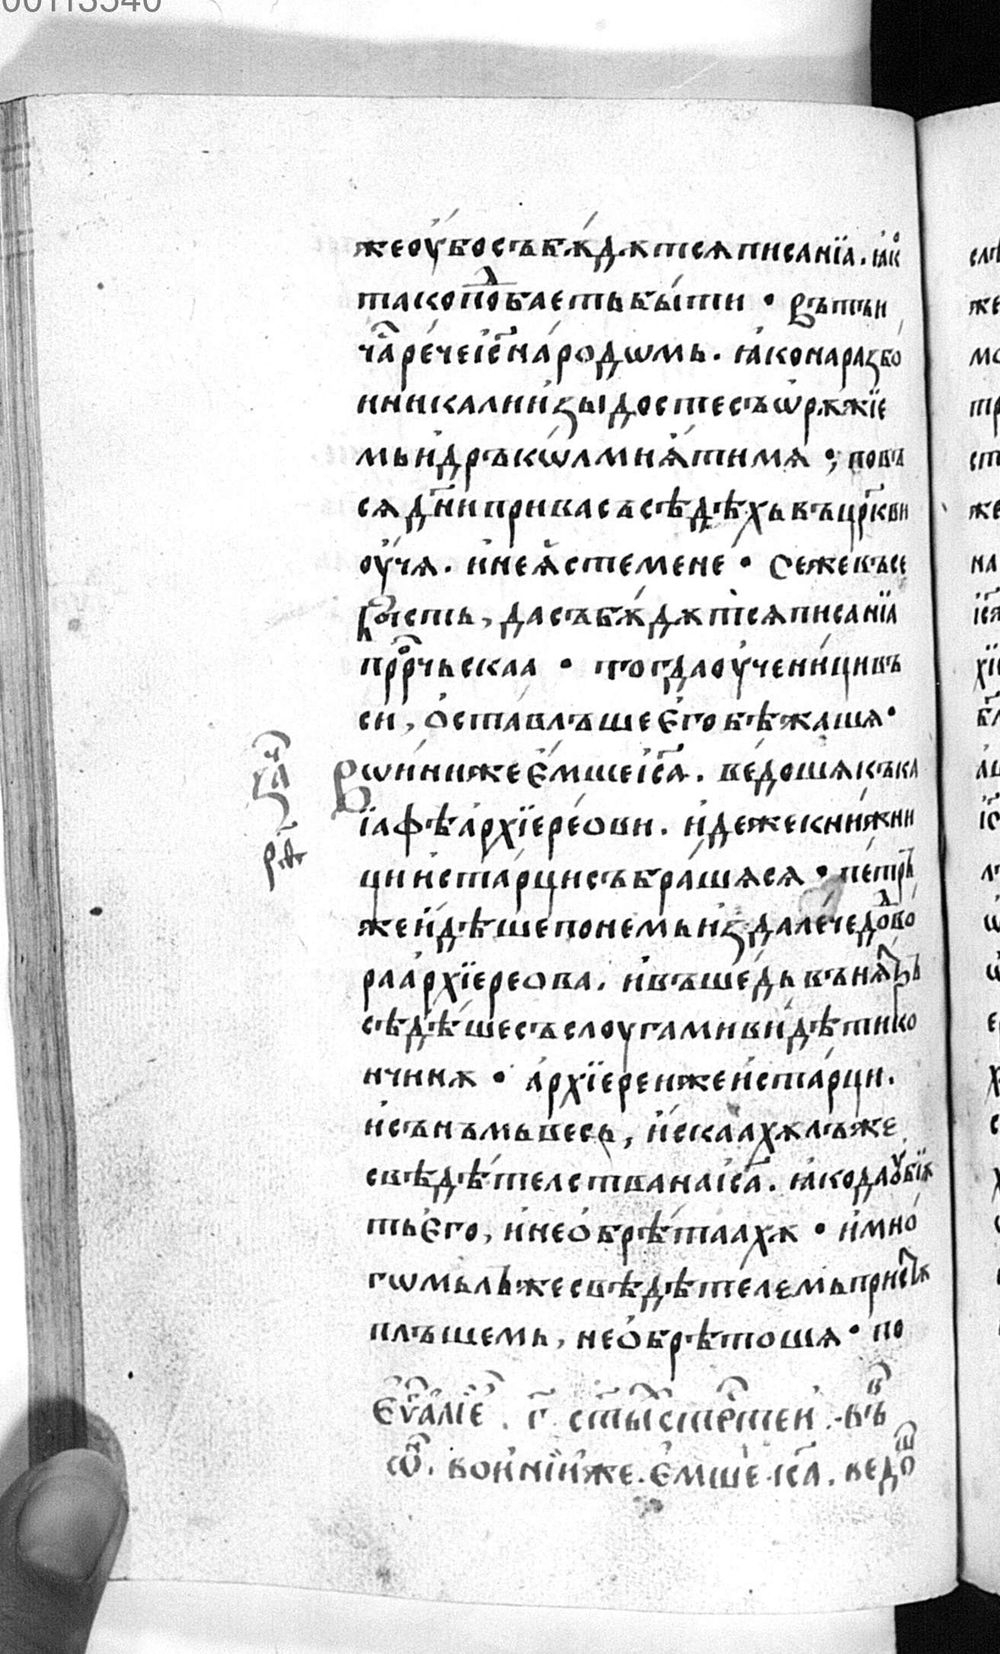 00113540
же ѹ҆бо съ бѫ́дѫтсѧ писанїа. ꙗ҆ко
тако пⷣобаеть бы́ти · Въ тъи
ча̑ рече і҆с҃ наро́дѡмь. ꙗ҆ко на разбо́
иника ли и҆зыдосте съ ѡ҆рѫжїе
мь и҆ дръкѡлми ѧ҆ти мѧ ; по въ
сѧ дн҃и при васъ сѣдѣхь въ цр҃кви
ѹ҆чѧ. и҆ не ѧ҆сте мене · Се же въсе
бысть, да съ бѫ́дѫтсѧ писанїа
прⷪ҇рчьскаа · тогда ѹ҆чени́ци въ
си, ѡ҆ставлъше е҆го бѣжашѧ ·
Вѡи́ни же е҆мше і҆с҃а. ве́дошѧ къ ка
їафѣ а҆рхїере́ови. и҆деже книжни
ци и҆ ста́рци събра́шѧсѧ · пе́трь
же и҆дѣше по немь и҆здале́че до дво
ра а҆рхїереова. и҆ въше́дь вънѧ́трь
сѣдѣ́ше съ слѹгами ви́дѣти ко
нчинѫ · а҆рхїереи же и҆ ста́рци.
и҆ сънъмь весь, и҆скаахѫ лъже
свѣдѣ́телства на і҆с҃а. ꙗ҆ко да ѹ҆бїѫ
ть е҆го, и҆ не ѡ҆брѣ́таахѫ · и҆ мно́
гѡмь лъже свѣдѣ́телемь пристѫ
плъшемь, не ѡ҆брѣ́тошѧ · по
за҄
рѳ҃
Еѵ҆а҆лїе. г҃. ст҃ы стрⷭ҇теи. въ
ѡ҆. вои́ни же. е҆мше іс҃а. ведо